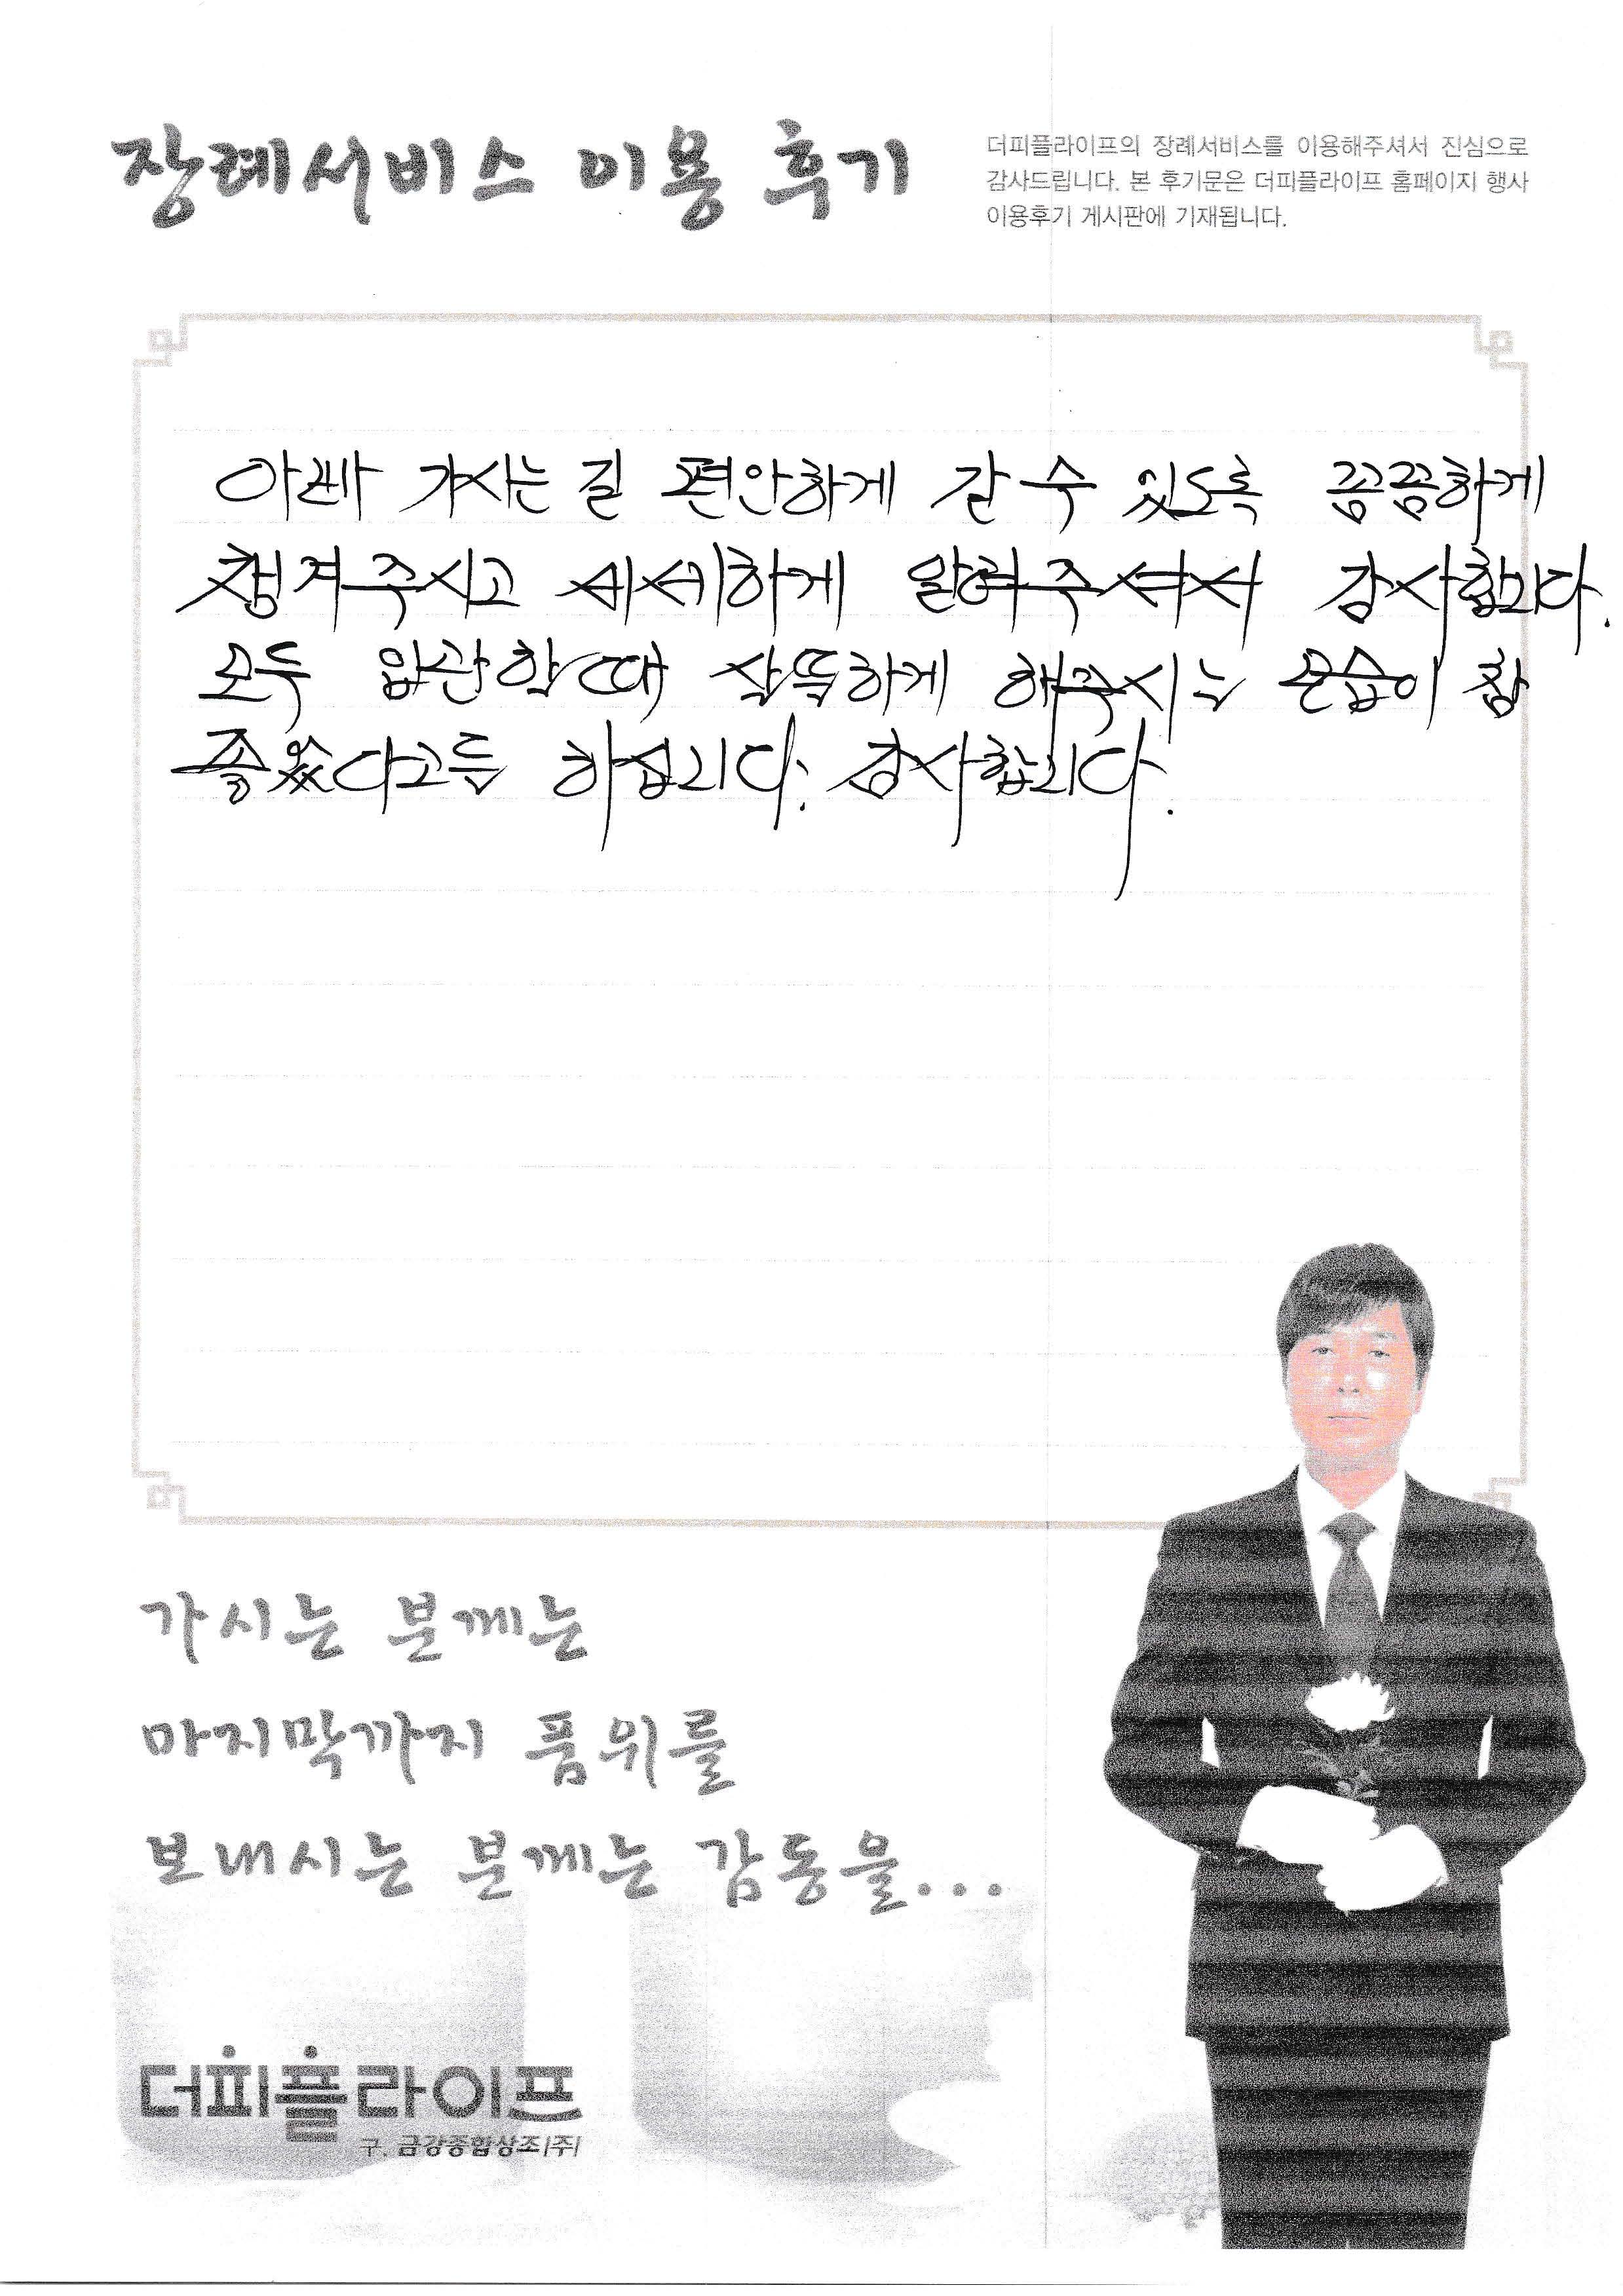 장례서비스 이용 후기
더피플라이프의 장례서비스를 이용해주셔서 진심으로
감사드립니다. 본 후기문은 더피플라이프 홈페이지 행사
이용후기 게시판에 기재됩니다.
아빠 가시는 길 편안하게 갈 수 있도록 꼼꼼하게
챙겨주시고 세세하게 알려주셔서 감사합니다.
모두 입관할때 살뜰하게 해주시는 모습이 참
좋았다고들 하십니다. 감사합니다.
가시는 분께는
마지막까지 품위를
보내시는 분께는 감동을...
더피플라이프
구. 금강종합상조(주)